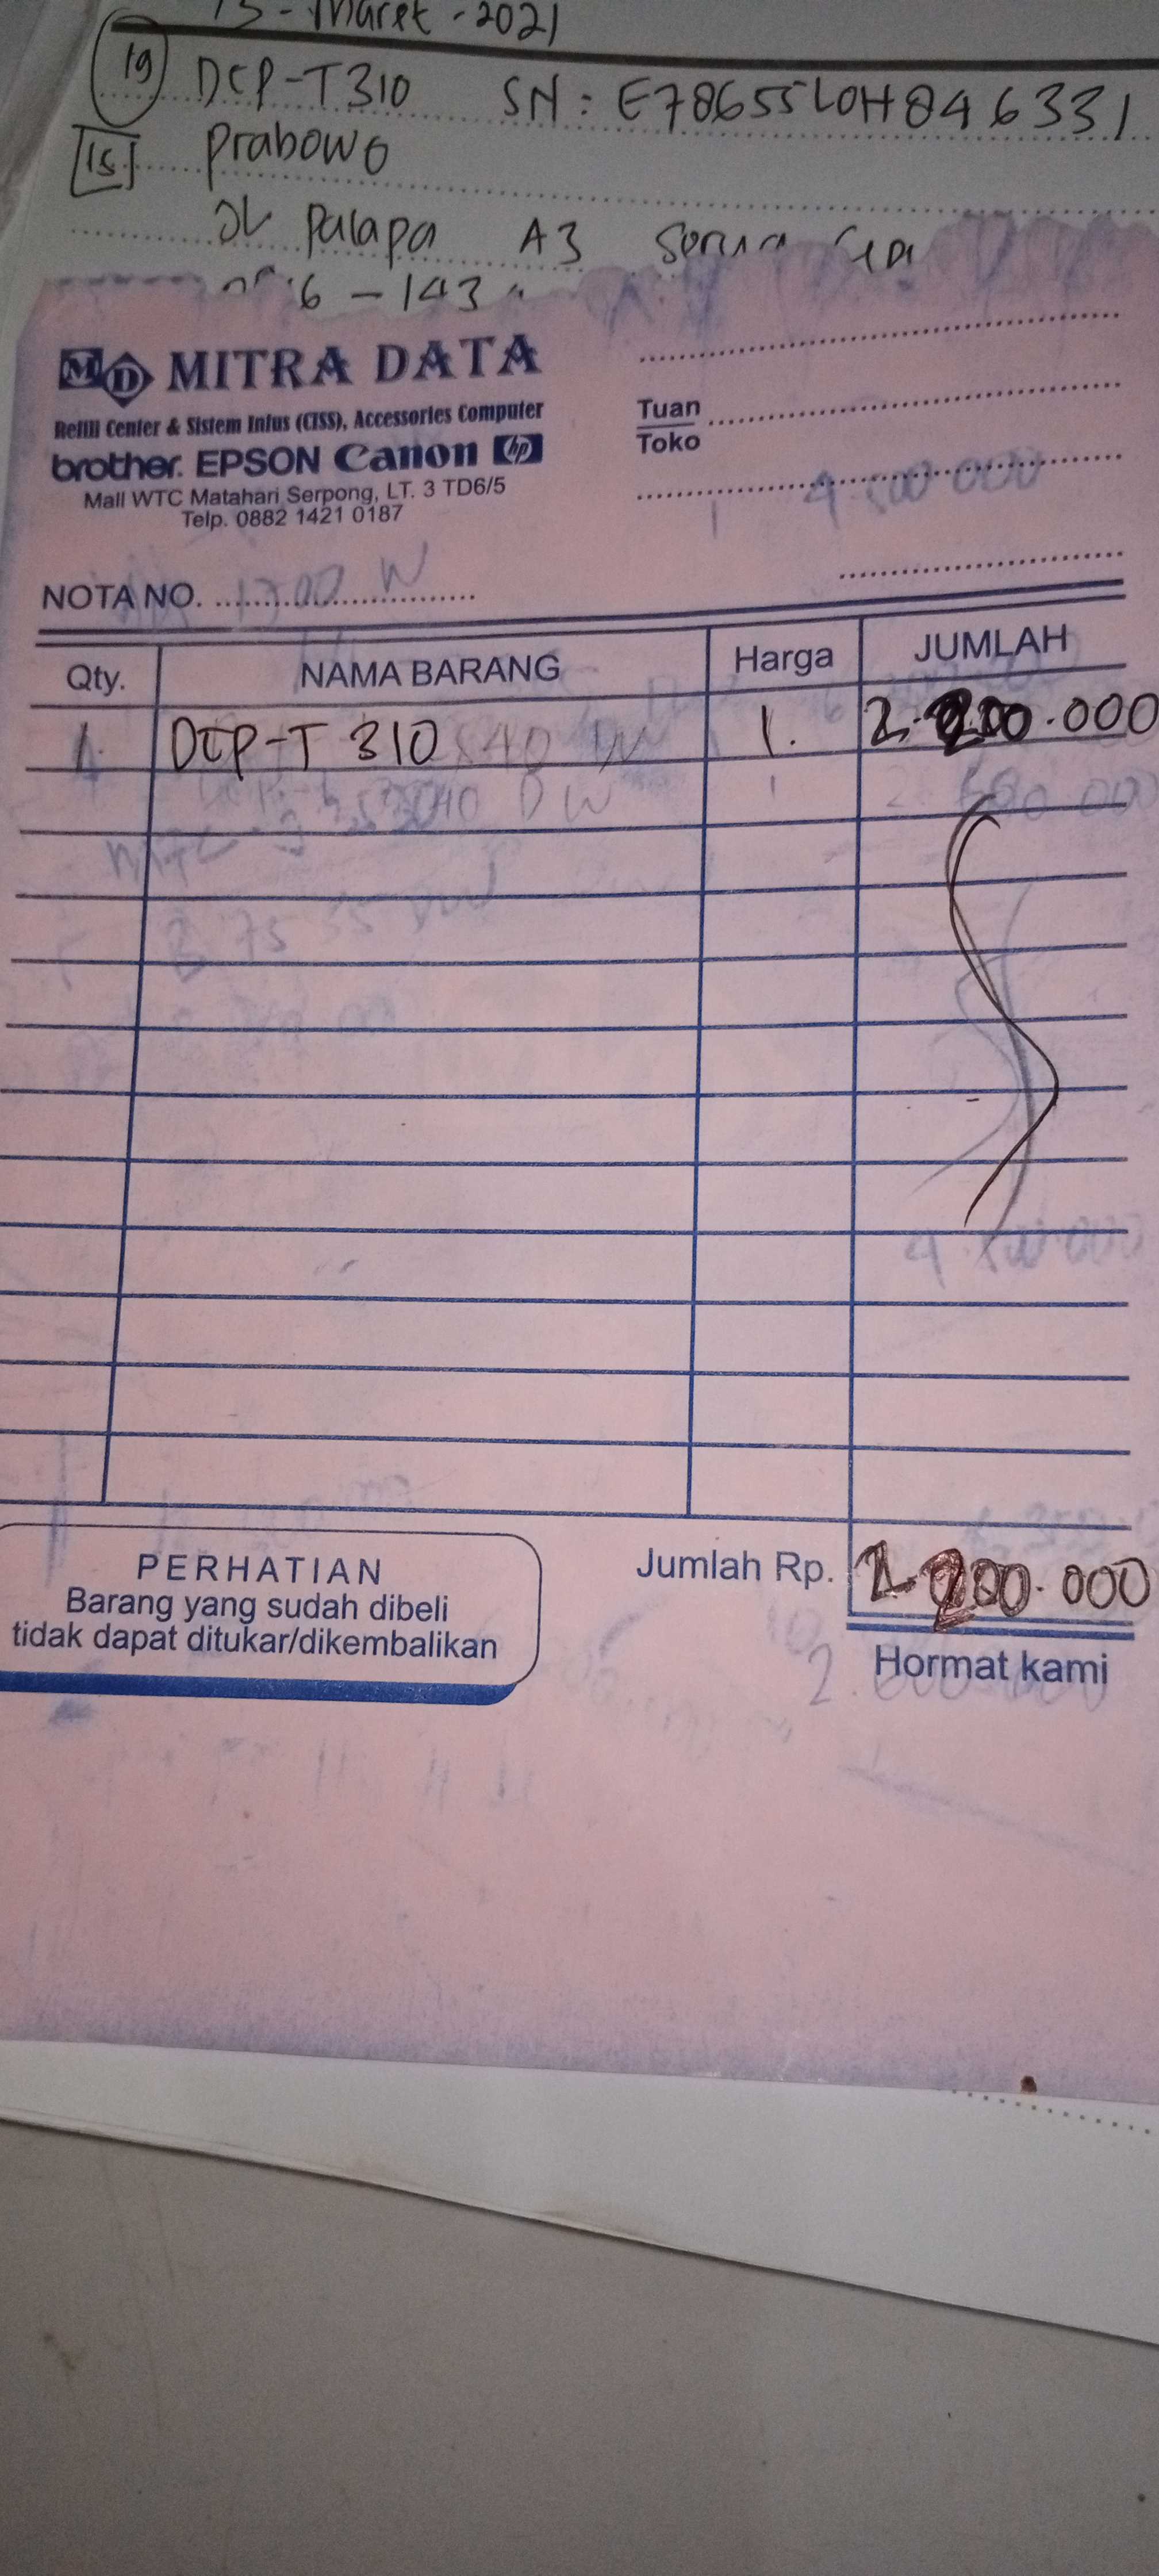 15 - Maret - 2021
19 DCP-T310 SN: E78655L0H846331
15 Prabowo
JL Palapa A3 Serua
6-143
MD MITRA DATA
Refill Center & Sistem Infus (CISS), Accessories Computer
brother. EPSON Canon hp
Mall WTC Matahari Serpong, LT. 3 TD6/5
Telp. 0882 1421 0187
Tuan
Toko
NOTA NO.
Qty. NAMA BARANG Harga JUMLAH
1. DCP-T 310 1. 2.200.000
PERHATIAN
Barang yang sudah dibeli
tidak dapat ditukar/dikembalikan
Jumlah Rp. 2.200.000
Hormat kami